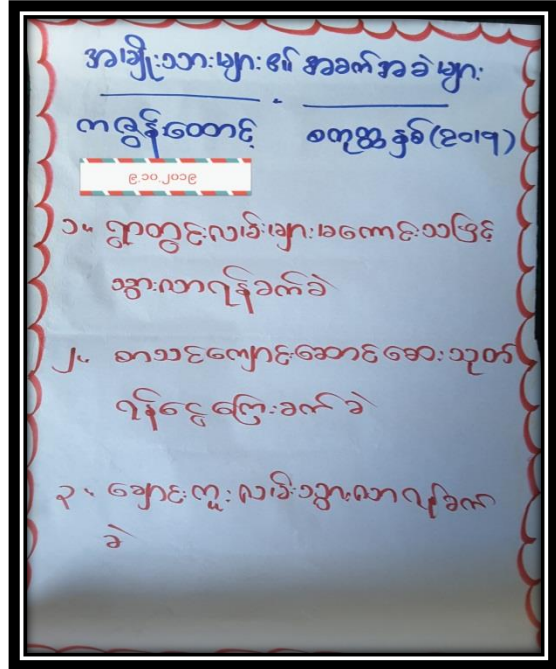 အမျိုးသားများ၏ အခက်အခဲများ
ကဇွန်ထောင့် စတုတ္ထနှစ်(၃၀၁၅)
၉.၁၀.၂၀၁၉
၁။ ရွာတွင်းလမ်းများမကောင်းသဖြင့်
သွားလာရန်ခက်ခဲ
၂။ စာသင်ကျောင်းဆောင်ဆေးသုတ်
ရန်ငွေကြေးခက်ခဲ
၃။ ချောင်းကူးလမ်းသွားလာရန်ခက်
ခဲ